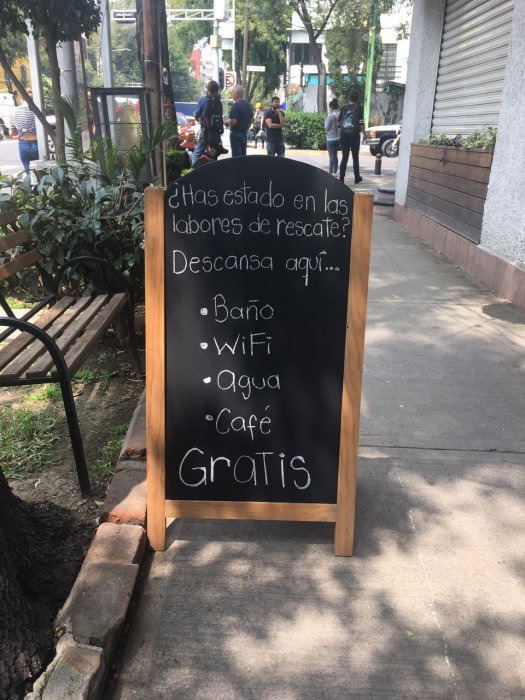 ¿Has estado en las
labores de rescate?
Descansa aquí...
• Baño
• WiFi
• agua
• Café
Gratis